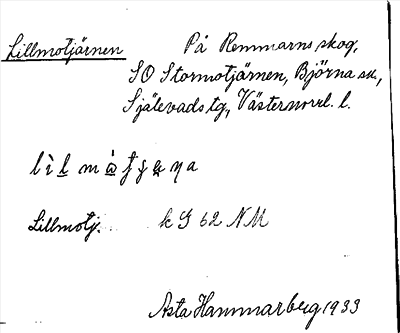 Lillmotjärnen
På Remmarns skog,
SO Stormotjärnen, Björna sn,
Själevads tg, Västernorrl. l.
Lillmotj. k G 62 NM
Asta Hammarberg 1933